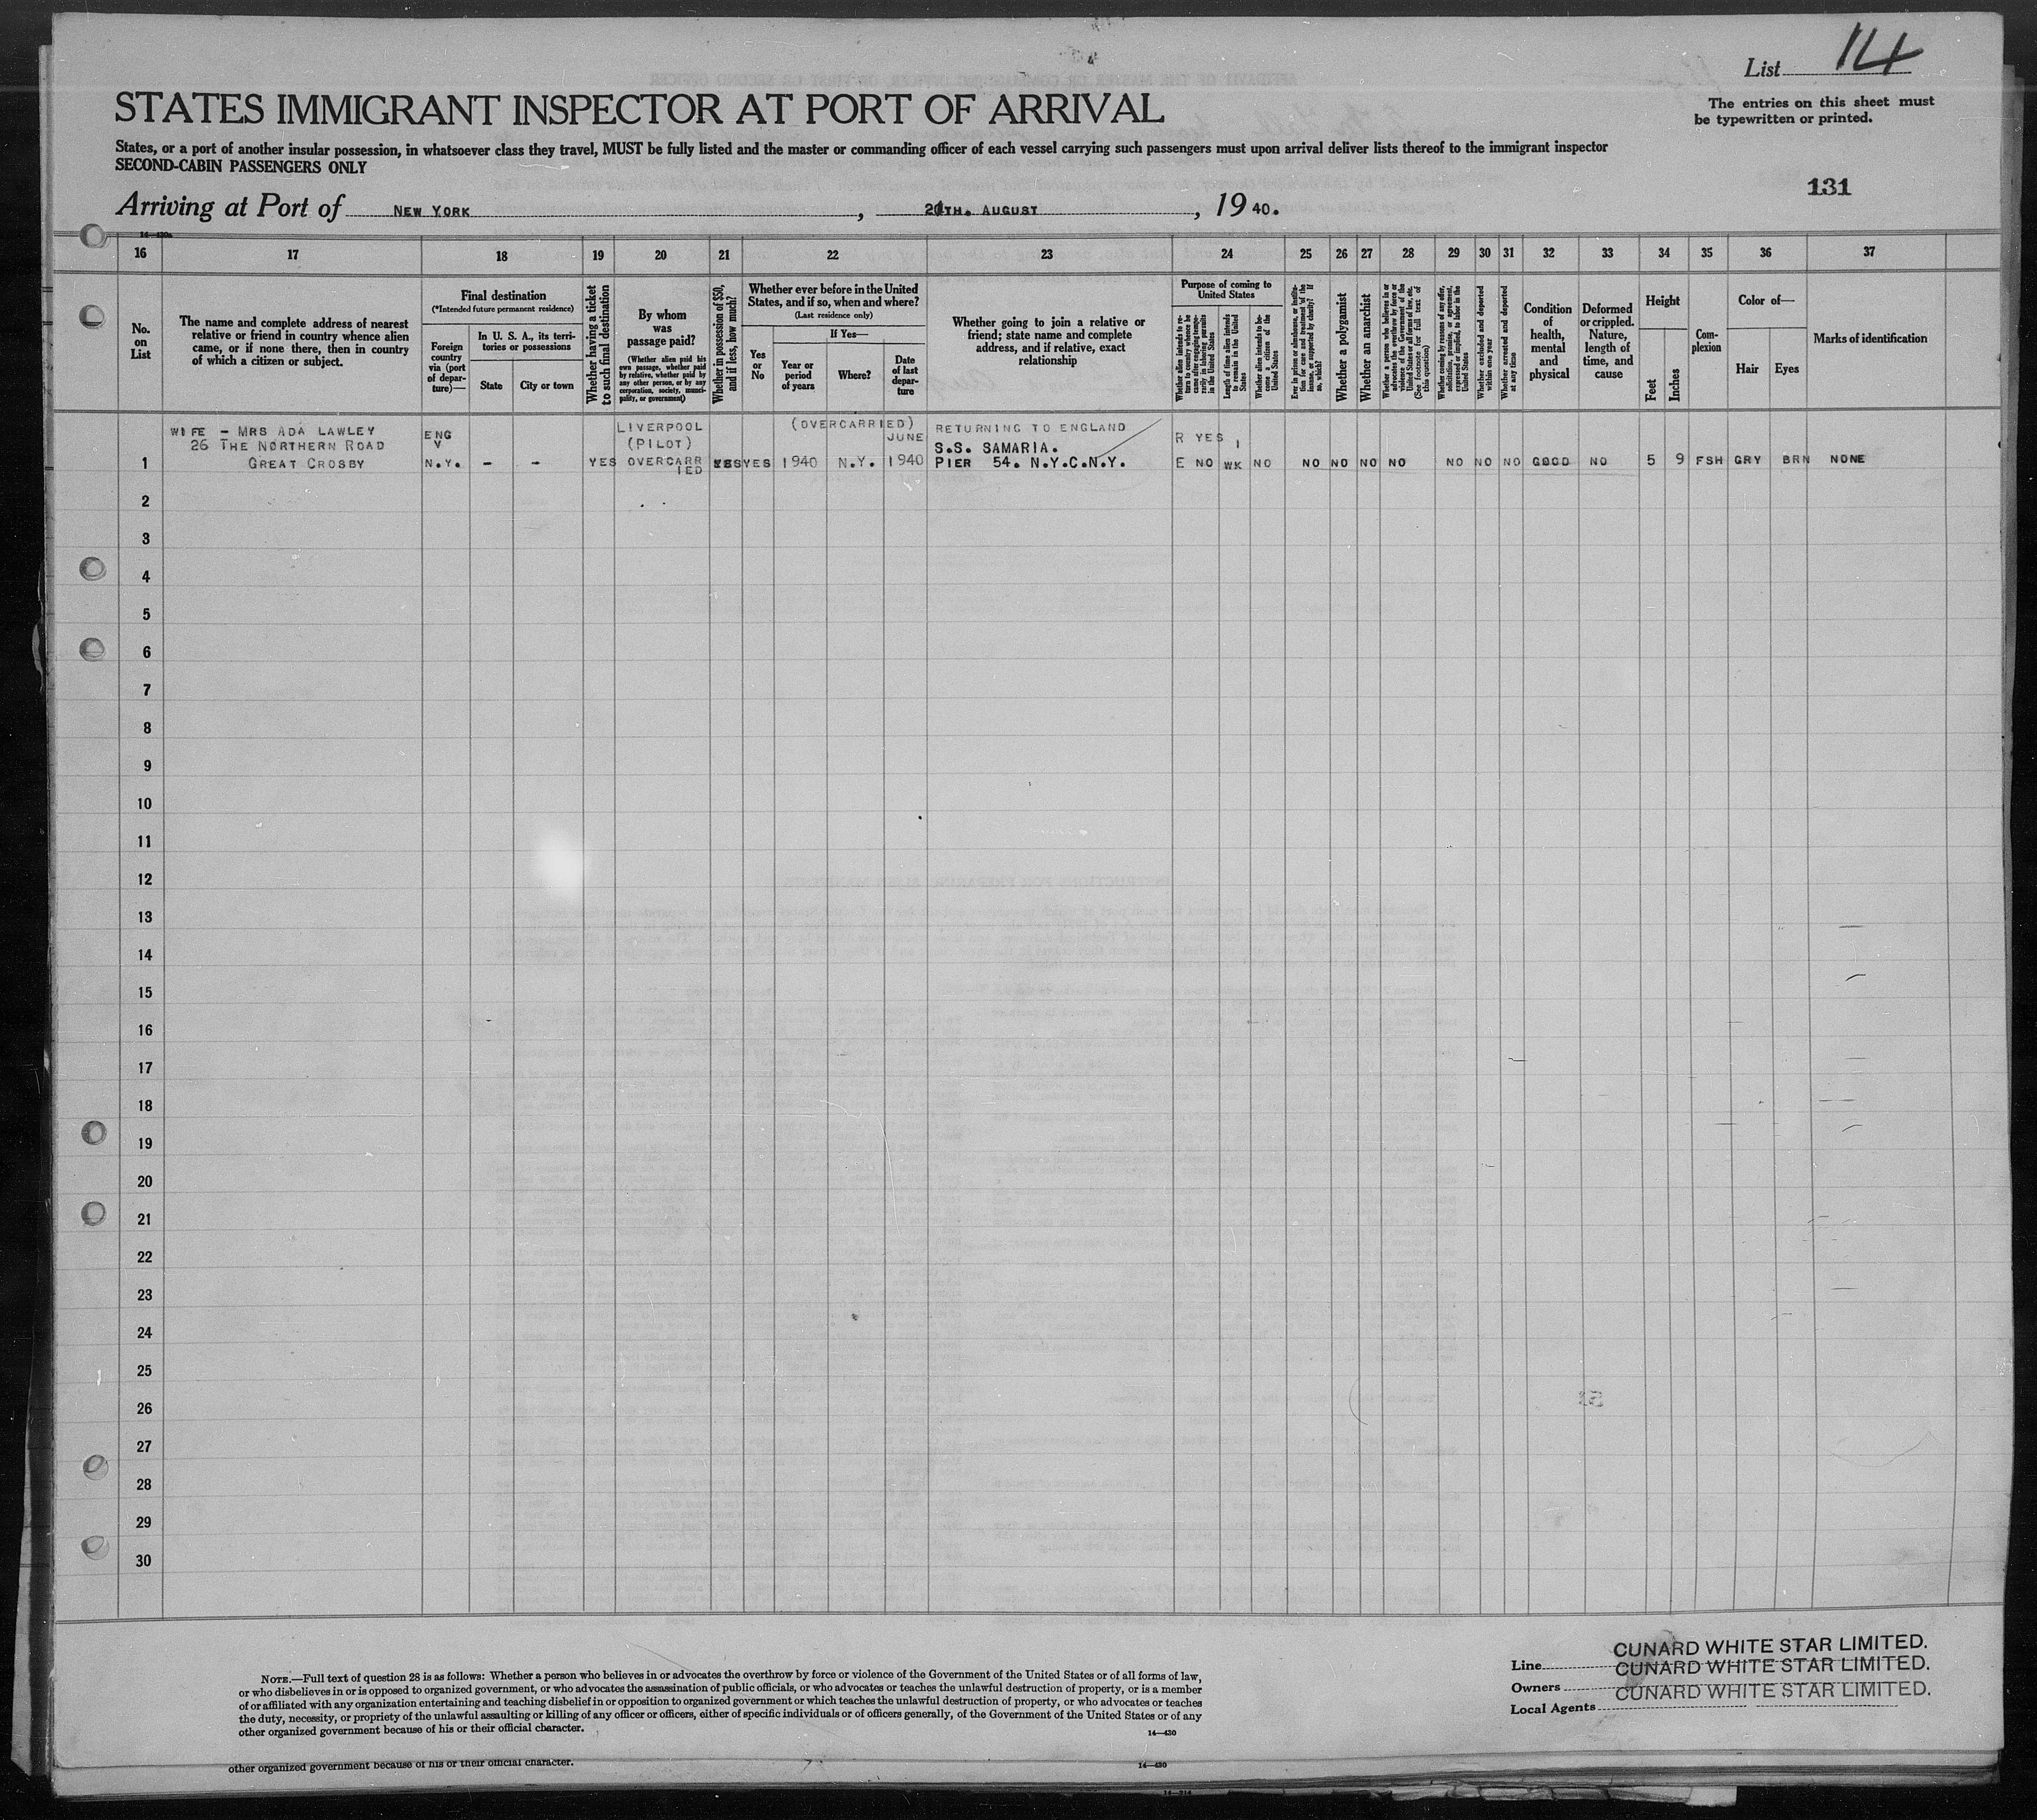 List 14
STATES IMMIGRANT INSPECTOR AT PORT OF ARRIVAL
The entries on this sheet must
be typewritten or printed.
States, or a port of another insular possession, in whatsoever class they travel, MUST be fully listed and the master or commanding officer of each vessel carrying such passengers must upon arrival deliver lists thereof to the immigrant inspector
SECOND-CABIN PASSENGERS ONLY
131
Arriving at Port of NEW YORK, TH. AUGUST, 19 40.
16 17 18 19 20 21 22 23 24 25 26 27 28 29 30 31 32 33 34 35 36 37
No.
on
List
The name and complete address of nearest
relative or friend in country whence alien
came, or if none there, then in country
of which a citizen or subject.
Final destination
(*Intended future permanent residence)
Foreign
country
via (port
of depar-
ture)—
In U. S. A., its terri-
tories or possessions
State
City or town
Whether having a ticket
to such final destination
By whom
was
passage paid?
(Whether alien paid his
own passage, whether paid
by relative, whether paid by
any other person, or by any
corporation, society, munici-
pality, or government)
Whether in possession of $50,
and if less, how much?
Whether ever before in the United
States, and if so, when and where?
(Last residence only)
Yes
or
No
If Yes—
Year or
period
of years
Where?
Date
of last
depar-
ture
Whether going to join a relative or
friend; state name and complete
address, and if relative, exact
relationship
Purpose of coming to
United States
Whether alien intends to re-
turn to country whence he
came after engaging tempo-
rarily in laboring pursuits
in the United States
Length of time alien intends
to remain in the United
States
Whether alien intends to be-
come a citizen of the
United States
Ever in prison or almshouse, or institu-
tion for care and treatment of the
insane, or supported by charity? If
so, which?
Whether a polygamist
Whether an anarchist
Whether a person who believes in or
advocates the overthrow by force or
violence of the Government of the
United States or all forms of law, etc.
(See footnote for full text of
this question)
Whether coming by reasons of any offer,
solicitation, promise, or agreement,
expressed or implied, to labor in the
United States
Whether excluded and deported
within one year
Whether arrested and deported
at any time
Condition
of
health,
mental
and
physical
Deformed
or crippled.
Nature,
length of
time, and
cause
Height
Feet
Inches
Com-
plexion
Color of—
Hair
Eyes
Marks of identification
WIFE - MRS ADA LAWLEY
26 THE NORTHERN ROAD
GREAT CROSBY
ENG
V
N.Y.
-
-
YES
LIVERPOOL
(PILOT)
OVERCARR
IED
YES
(OVERCARRIED)
YES
1940
N.Y.
JUNE
1940
RETURNING TO ENGLAND
S.S. SAMARIA.
PIER 54. N.Y.C.N.Y.
R YES
E NO
1
WK
NO
NO NO NO NO NO NO NO GOOD NO 5 9 FSH GRY BRN NONE
1
2
3
4
5
6
7
8
9
10
11
12
13
14
15
16
17
18
19
20
21
22
23
24
25
26
27
28
29
30
NOTE.—Full text of question 28 is as follows: Whether a person who believes in or advocates the overthrow by force or violence of the Government of the United States or of all forms of law,
or who disbelieves in or is opposed to organized government, or who advocates the assassination of public officials, or who advocates or teaches the unlawful destruction of property, or is a member
of or affiliated with any organization entertaining and teaching disbelief in or opposition to organized government or which teaches the unlawful destruction of property, or who advocates or teaches
the duty, necessity, or propriety of the unlawful assaulting or killing of any officer or officers, either of specific individuals or of officers generally, of the Government of the United States or of any
other organized government because of his or their official character.
14—430
Line CUNARD WHITE STAR LIMITED.
Owners CUNARD WHITE STAR LIMITED.
Local Agents CUNARD WHITE STAR LIMITED.
other organized government because of his or their official character.
14—430